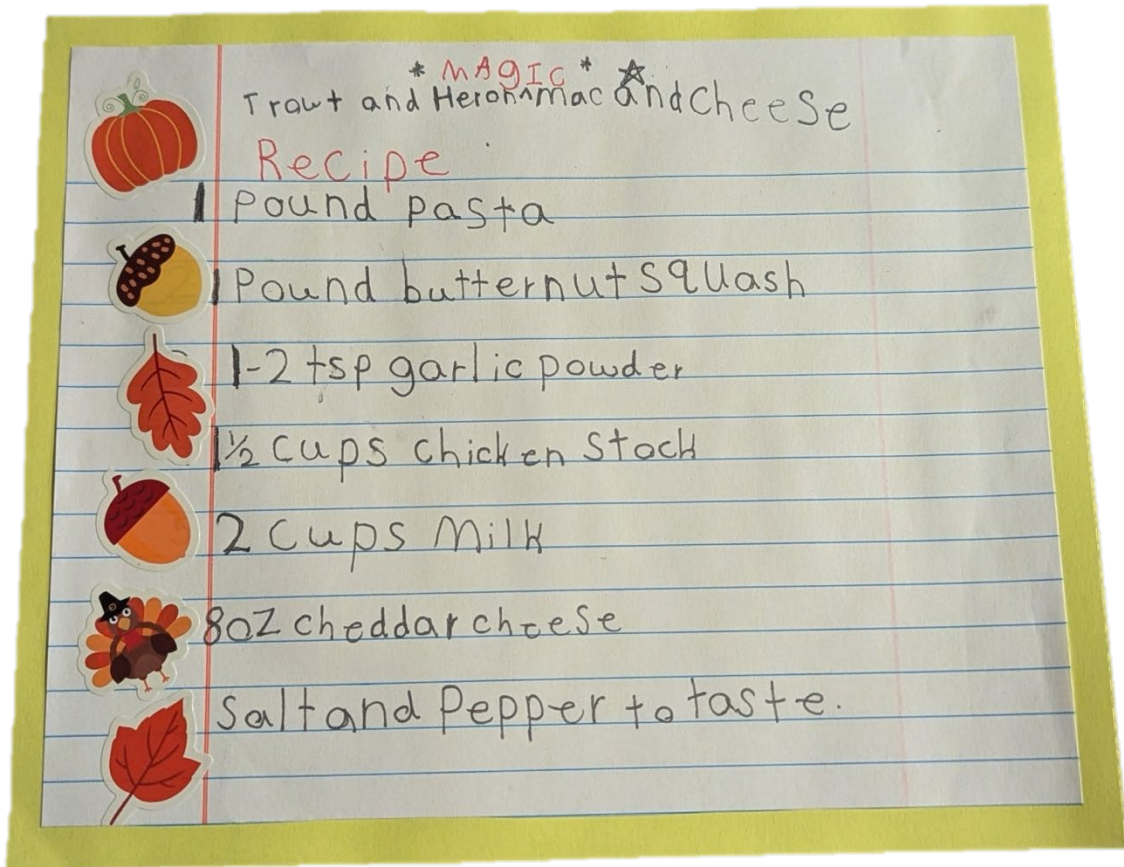 * MAGIC *
Trowt and Heron^mac and cheese
Recipe
1 Pound pasta
1 Pound butternut squash
1-2 tsp garlic powder
1½ cups chicken stock
2 cups Milk
8oz cheddar cheese
Salt and Pepper to taste.